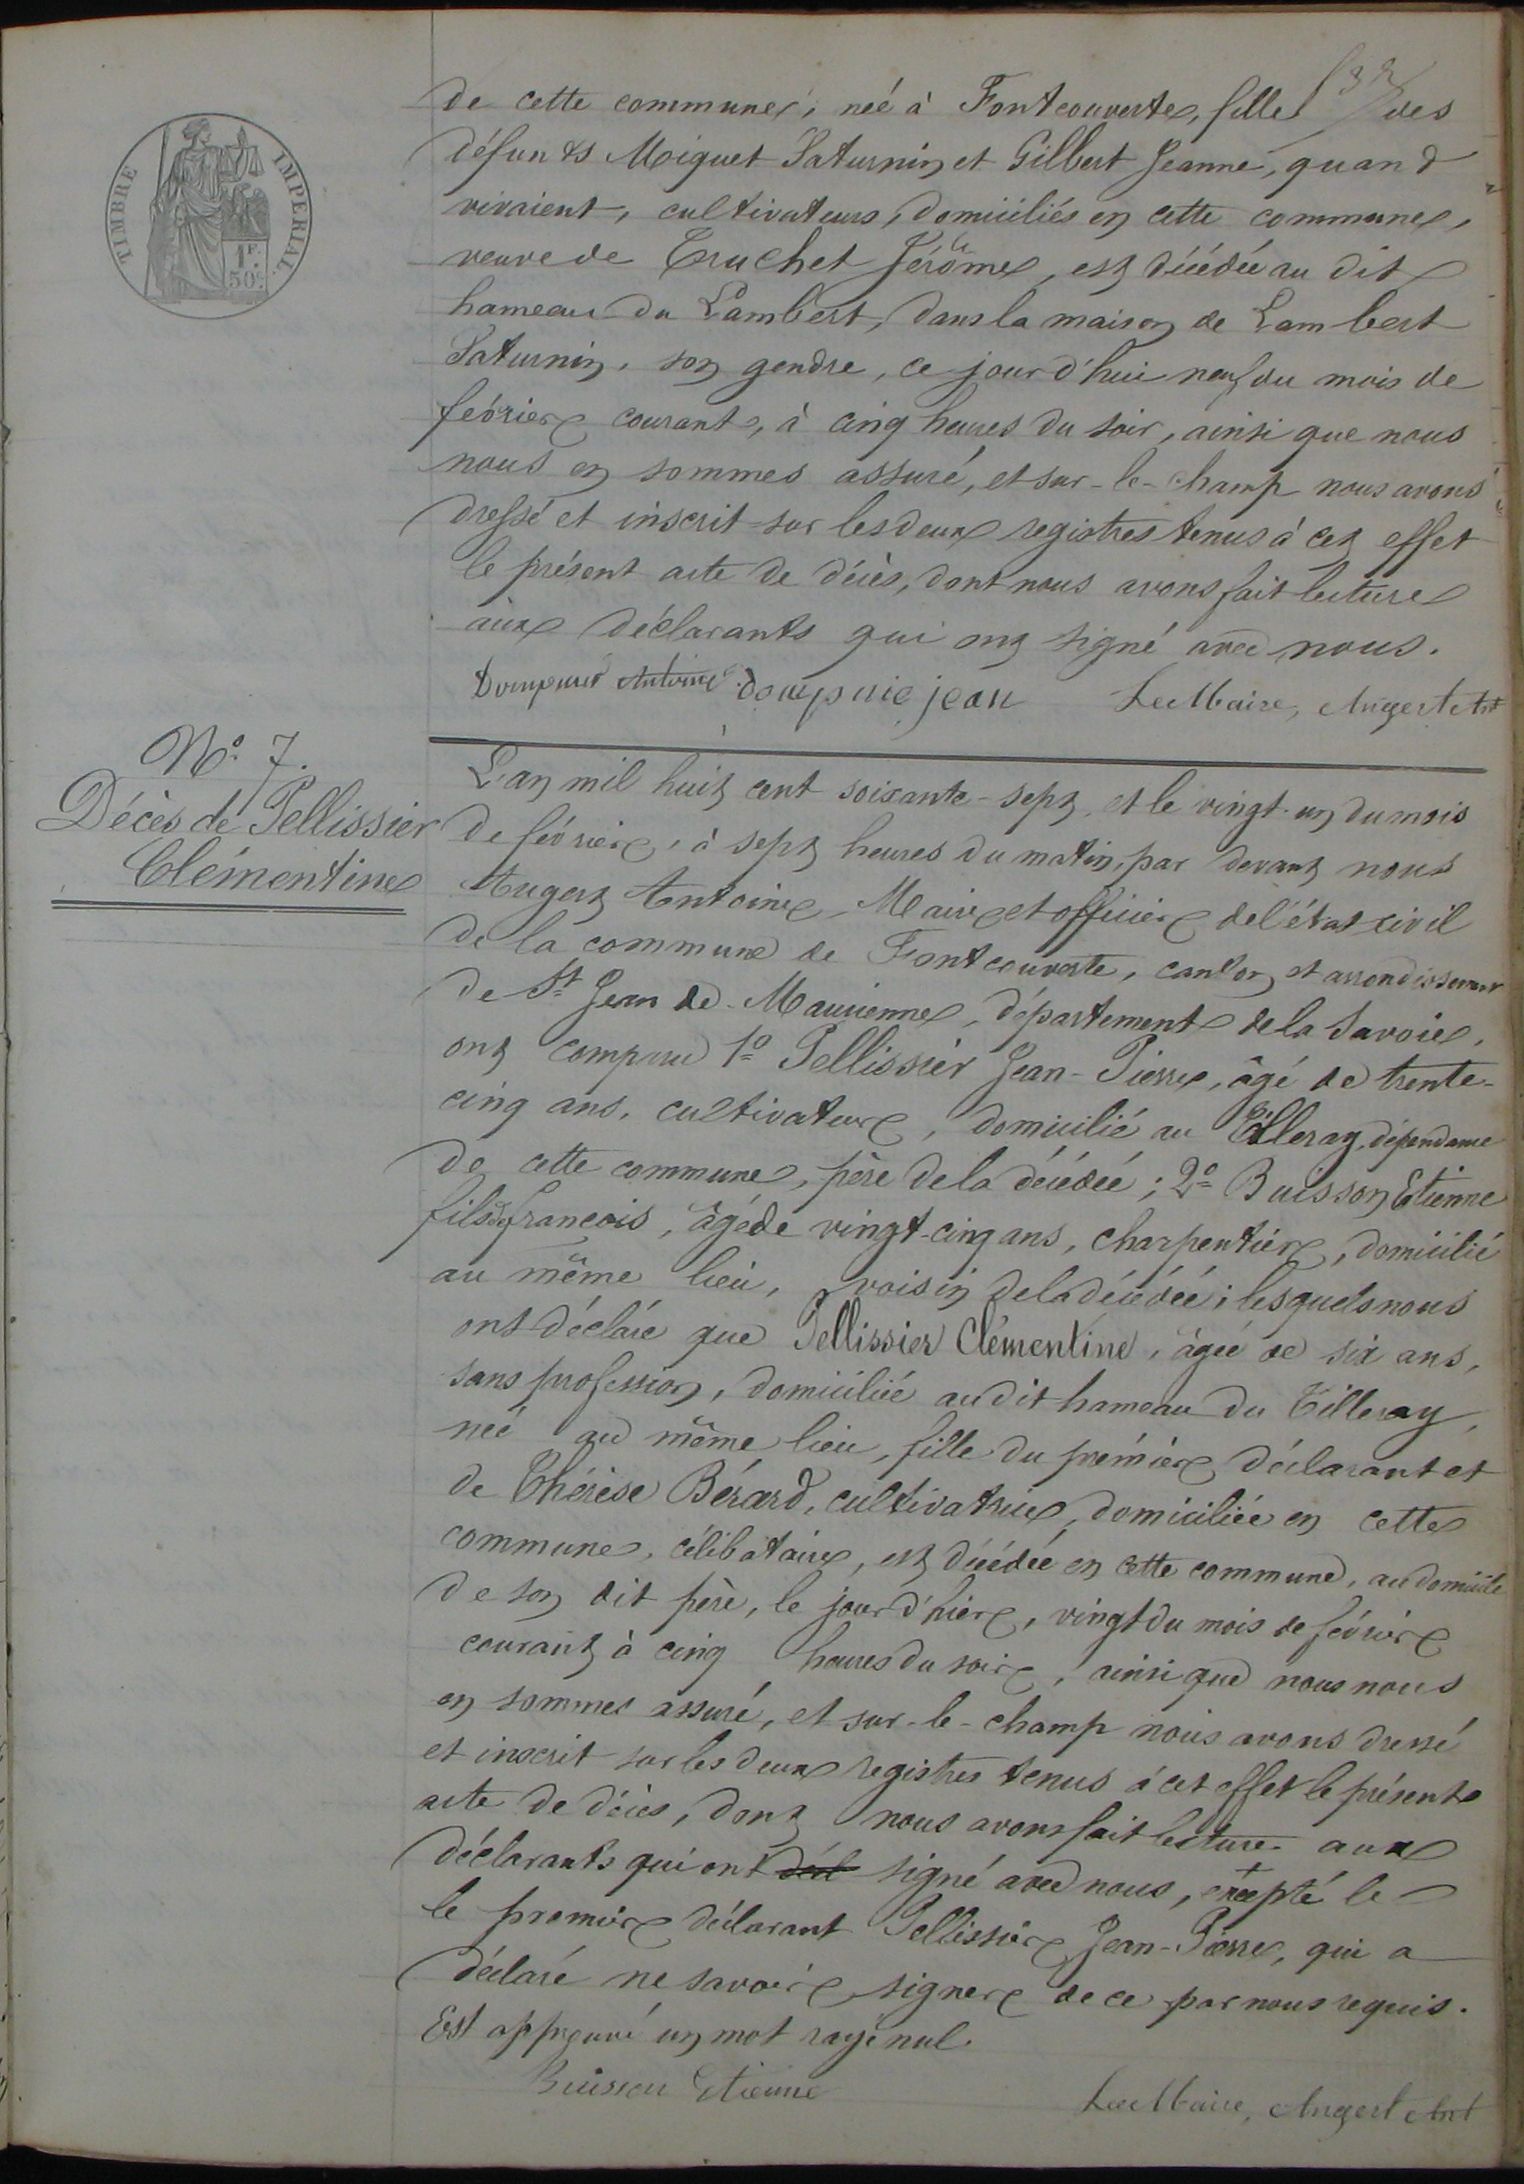 TIMBRE IMPERIAL.
1F.
50C.
de cette commune, née à Fontcouverte, fille des
défunts Moiguet Saturnin et Gilbert Jeanne, quand
vivaient, cultivateurs, domiciliés en cette commune,
veuve de Truchet Jérôme, est décédée au dit
hameau du Lambert, dans la maison de Lambert
Saturnin, son gendre, ce jourd'hui neuf du mois de
février courant, à cinq heures du soir, ainsi que nous
nous en sommes assuré, et sur-le-champ nous avons
dressé et inscrit sur les deux registres tenus à cet effet
le présent acte de décès, dont nous avons fait lecture
aux déclarants qui ont signé avec nous.
Antoine doupnie jean Le Maire, Augert Ant
N° 7.
Décès de Pellissier
Clémentine
L'an mil huit cent soixante-sept, et le vingt-un du mois
de février, à sept heures du matin, par devant nous
Augert Antoine, Maire et officier de l'état civil
de la commune de Fontcouverte, canton et arrondissement
de St Jean de Maurienne, département de la Savoie,
ont comparu 1° Pellissier Jean-Pierre, âgé de trente-
cinq ans, cultivateur, domicilié au Tilleray, dépendance
de cette commune, père de la décédée; 2° Buisson Etienne
fils de François, âgé de vingt-cinq ans, charpentier, domicilié
au même lieu, voisin de la décédée; lesquels nous
ont déclaré que Pellissier Clémentine, âgée de six ans,
sans profession, domiciliée au dit hameau du Tilleray,
née au même lieu, fille du prémier déclarant et
de Thérèse Bérard, cultivatrice, domiciliée en cette
commune, célibataire, est décédée en cette commune, au domicile
de son dit père, le jour d'hier, vingt du mois de février
courant à cinq heures du soir, ainsi que nous nous
en sommes assuré, et sur-le-champ nous avons dressé
et inscrit sur les deux registres tenus à cet effet le présent
acte de décès, dont nous avons fait lecture aux
déclarants qui ont décl signé avec nous, excepté le
le premier déclarant Pellissier Jean-Pierre, qui a
déclaré ne savoir signer de ce par nous requis.
Est approuvé un mot rayé nul.
Buisson Etienne Le Maire, Augert Ant